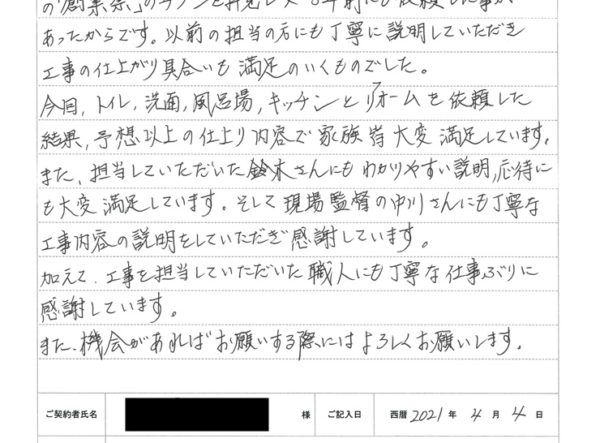 の「創業祭」のチラシを拝見し
あったからです。以前の担当の方にも丁寧に説明していただき
工事の仕上がり具合いも満足のいくものでした。
今回、トイレ、洗面、風呂場、キッチンとリフォームを依頼した
結果、予想以上の仕上り内容で家族皆大変満足しています。
また、担当していただいた鈴木さんにもわかりやすい説明、応待に
も大変満足しています。そして現場監督の中川さんにも丁寧な
工事内容の説明をしていただき感謝しています。
加えて、工事を担当していただいた職人にも丁寧な仕事ぶりに
感謝しています。
また、機会があればお願いする際にはよろしくお願いします。
ご契約者氏名 様 ご記入日 西暦 2021 年 4 月 4 日